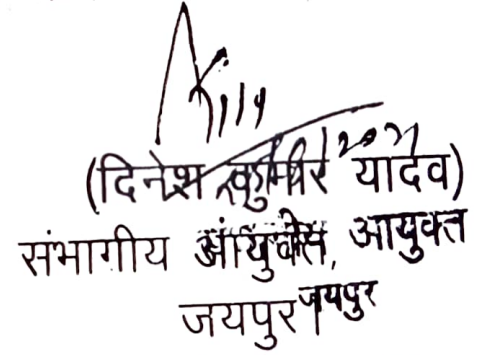 (दिनेश कुमार यादव)
संभागीय आयुक्त, आयुक्त
जयपुर जयपुर